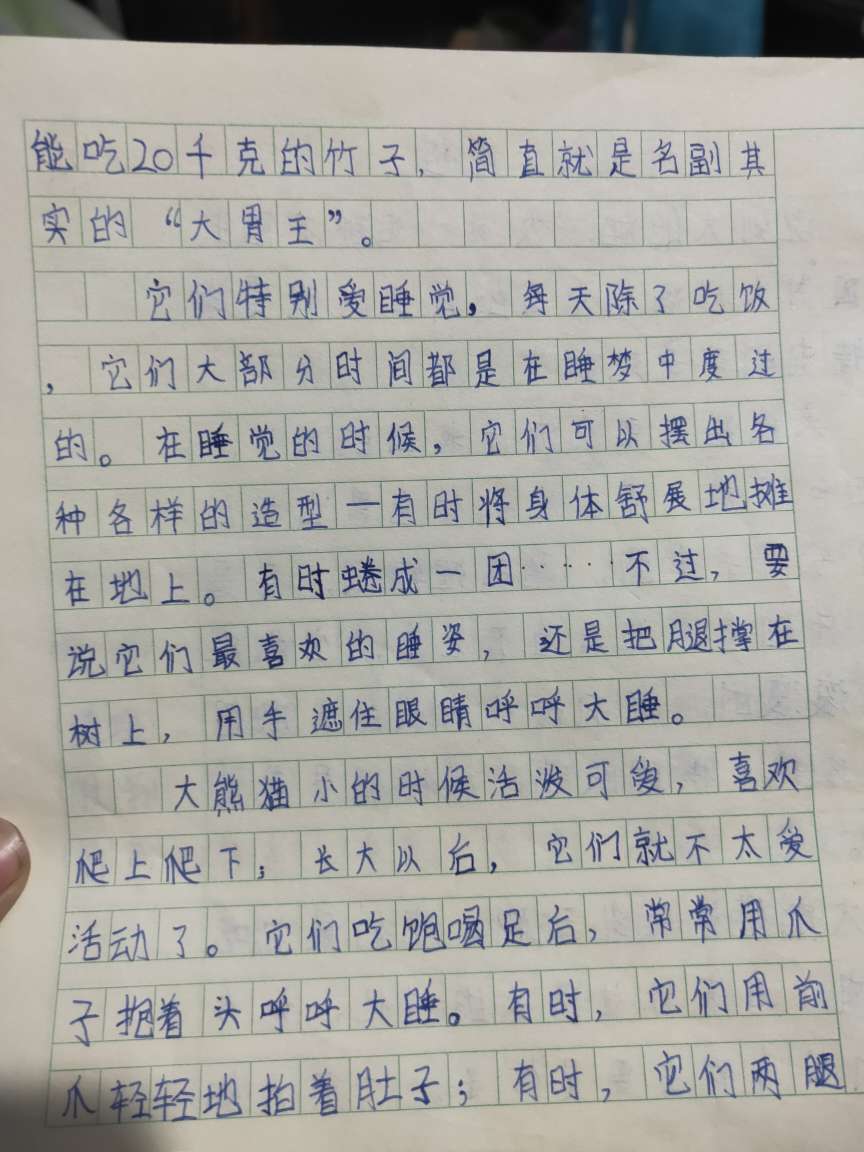 能吃20千克的竹子，简直就是名副其
实的“大胃王”。
它们特别爱睡觉，每天除了吃饭
，它们大部分时间都是在睡梦中度过
的。在睡觉的时候，它们可以摆出各
种各样的造型一有时将身体舒展地摊
在地上。有时蜷成一团····不过，要
说它们最喜欢的睡姿，还是把腿撑在
树上，用手遮住眼睛呼呼大睡。
大熊猫小的时候活泼可爱，喜欢
爬上爬下；长大以后，它们就不太爱
活动了。它们吃饱喝足后，常常用爪
子抱着头呼呼大睡。有时，它们用前
爪轻轻地拍着肚子；有时，它们两腿